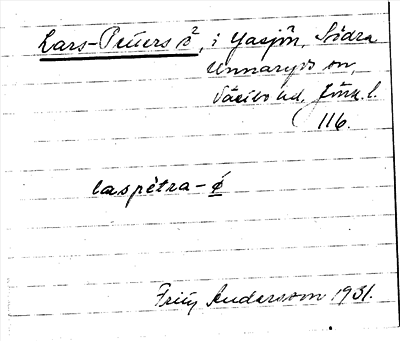 Lars-Peters ö², i Yasjön, Södra
Unnaryds sn,
Västbo hd, Jönk. l.
116.
laspètra-ö́
Fritz Andersson 1931.